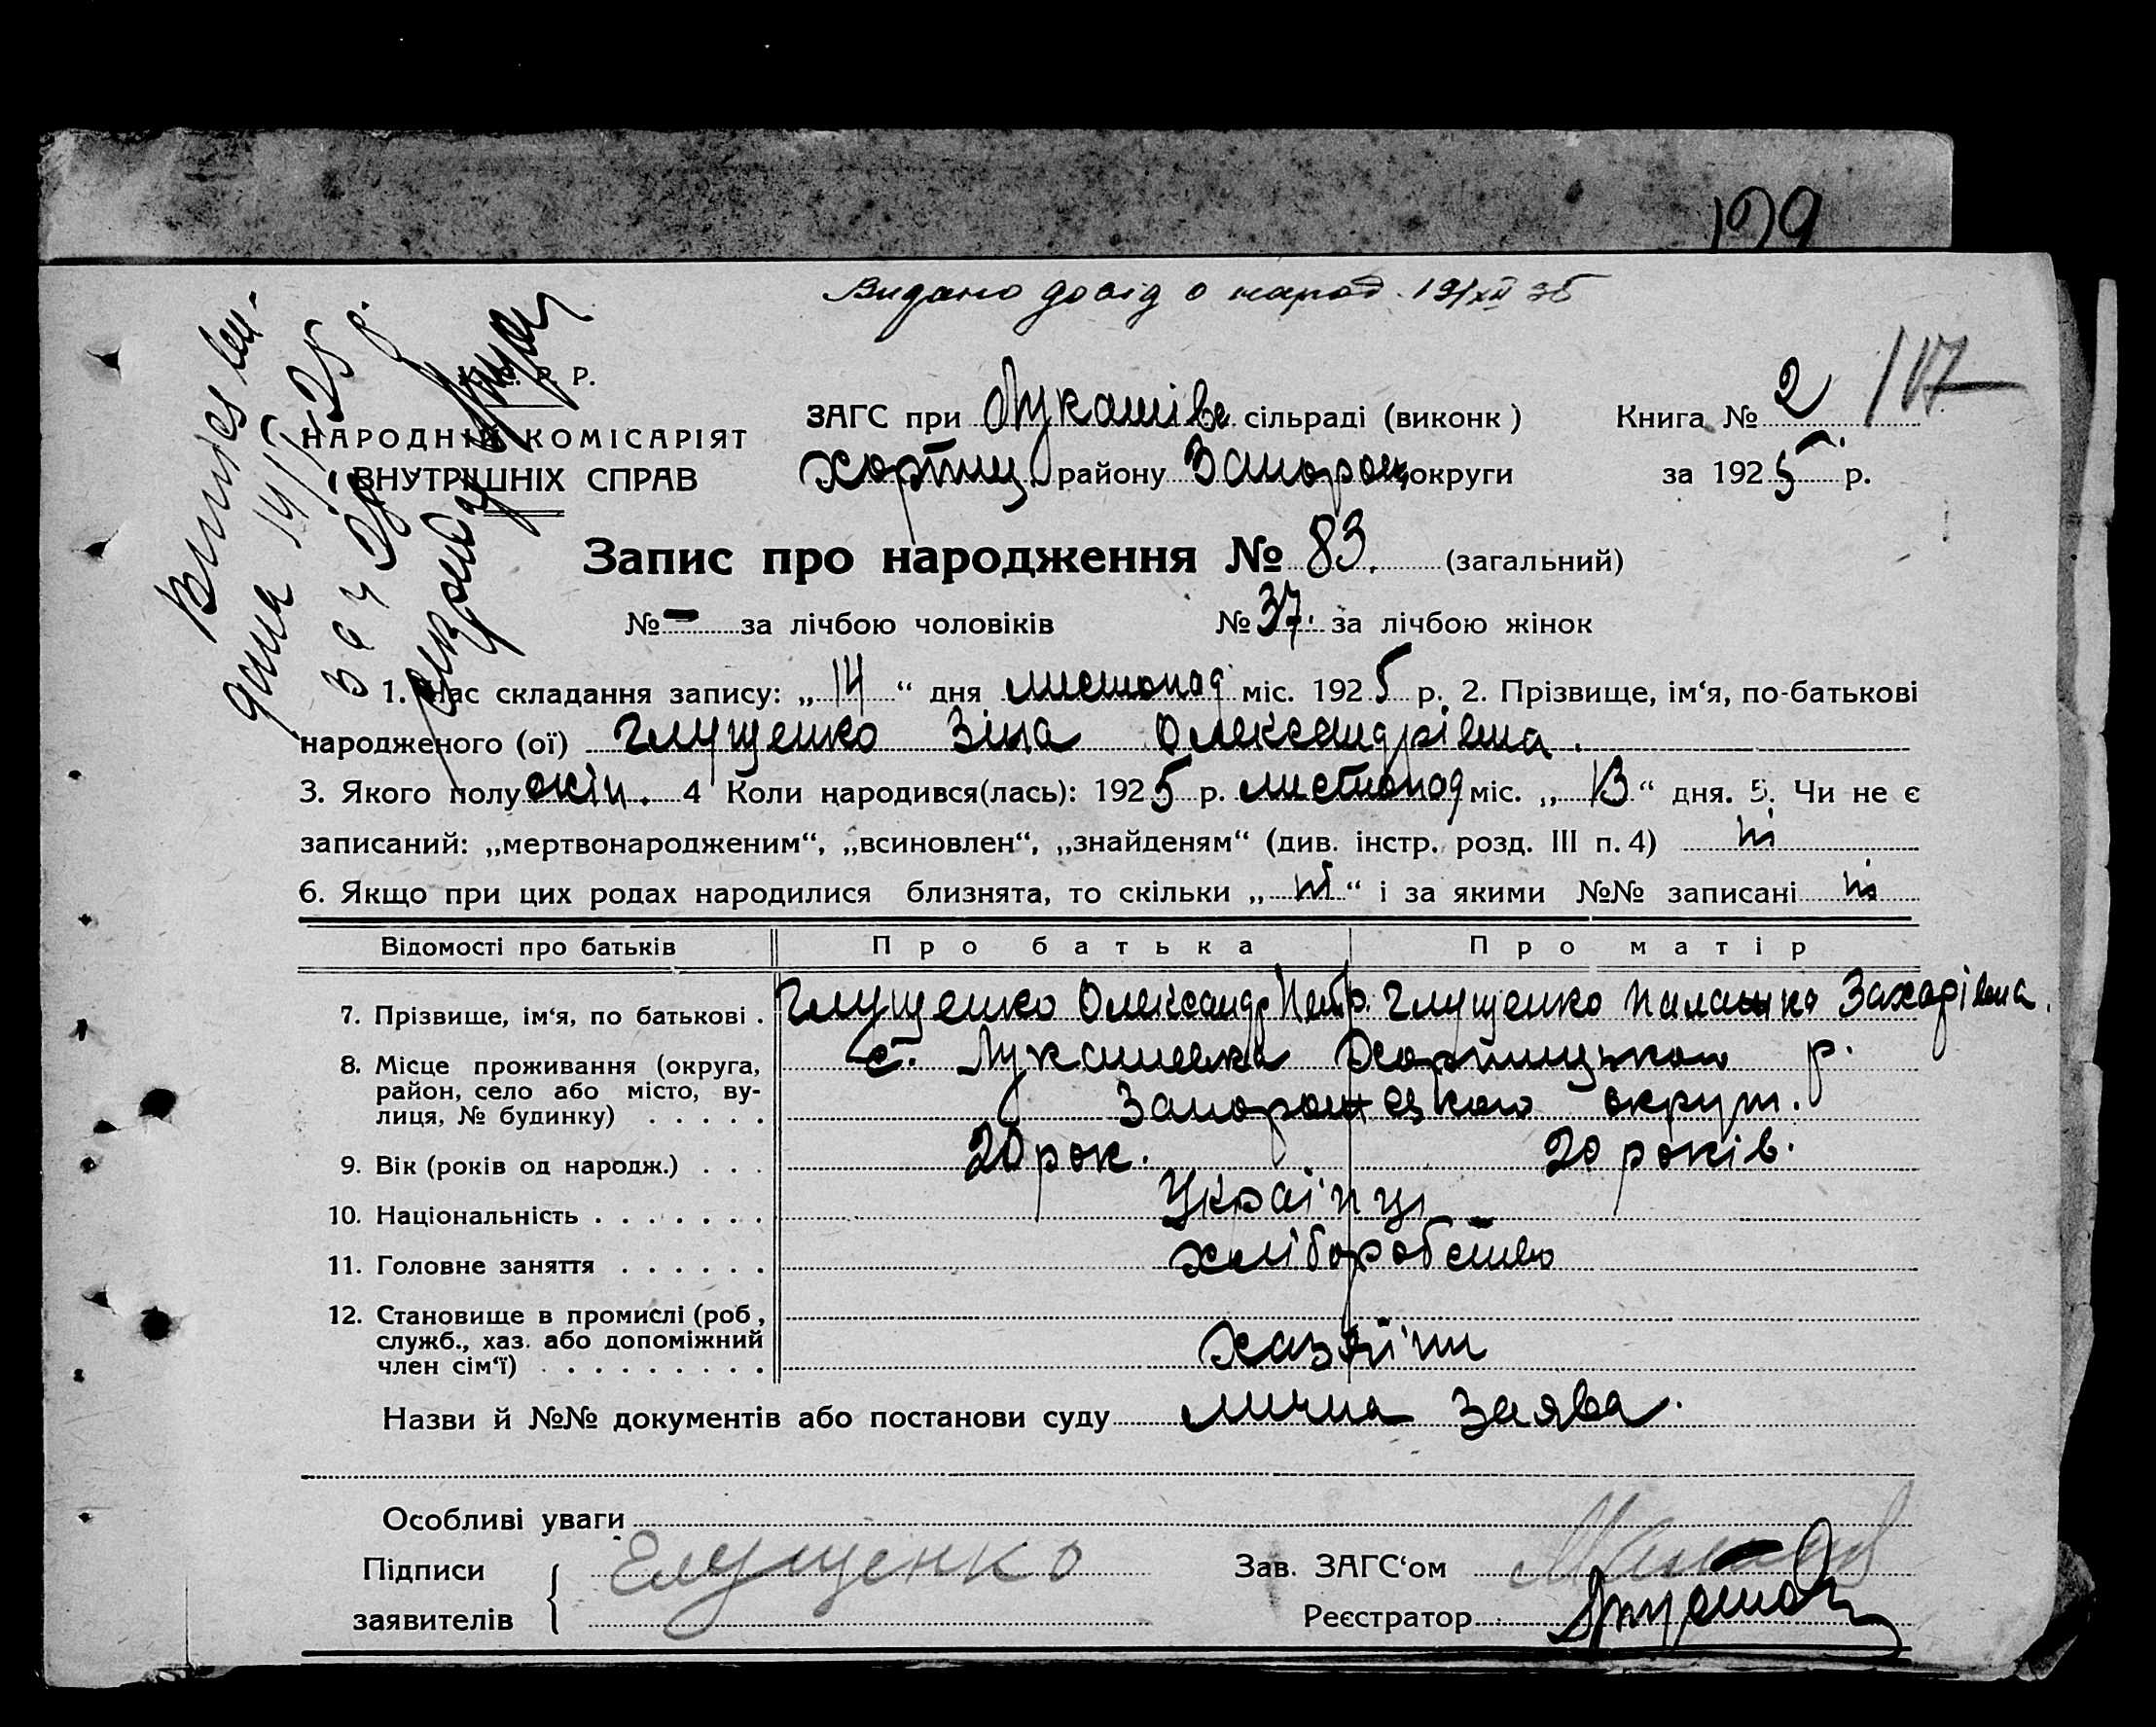 199
Видано довід о народ. 19/XII 35
Р. Р.
Виписі
дана 14/
ЗАГС при Лукашівс. сільраді (виконк)
Книга № 2
117
НАРОДНІЙ КОМІСАРІЯТ
ВНУТРІШНІХ СПРАВ
Хортиц району Запорож округи
за 1925 р.
Запис про народження № 83. (загальний)
№ – за лічбою чоловіків
№ 37. за лічбою жінок
1. Час складання запису: „ 14 “ дня листопад міс. 1925 р. 2. Прізвище, ім‘я, по-батькові
народженого (ої) Глущенко Зіна Олександрівна.
3. Якого полу жін. 4 Коли народився(лась): 1925 р. листопад міс. „ 13 “ дня. 5. Чи не є
записаний: „мертвонародженим“, „всиновлен“, „знайденям“ (див. інстр. розд. III п. 4) ні
6. Якщо при цих родах народилися близнята, то скільки „ ні “ і за якими №№ записані ні
Відомості про батьків
Про батька
Про матір
7. Прізвище, ім‘я, по батькові .
Глущенко Олександр Петр.
Глущенко Палажка Захарівна.
8. Місце проживання (округа,
район, село або місто, ву-
лиця, № будинку) . . . . .
с. Лукашевка Хортицького р.
Запорожського округ.
9. Вік (років од народж.) . . .
20 рок.
20 років.
10. Національність . . . . . . .
Українці
11. Головне заняття . . . . . .
хліборобство
12. Становище в промислі (роб,
служб., хаз. або допоміжний
член сім‘ї) . . . . . . . . .
хазяїни
Назви й №№ документів або постанови суду лична заява.
Особливі уваги
Підписи
заявителів
Глущенко
Зав. ЗАГС‘ом
Реєстратор